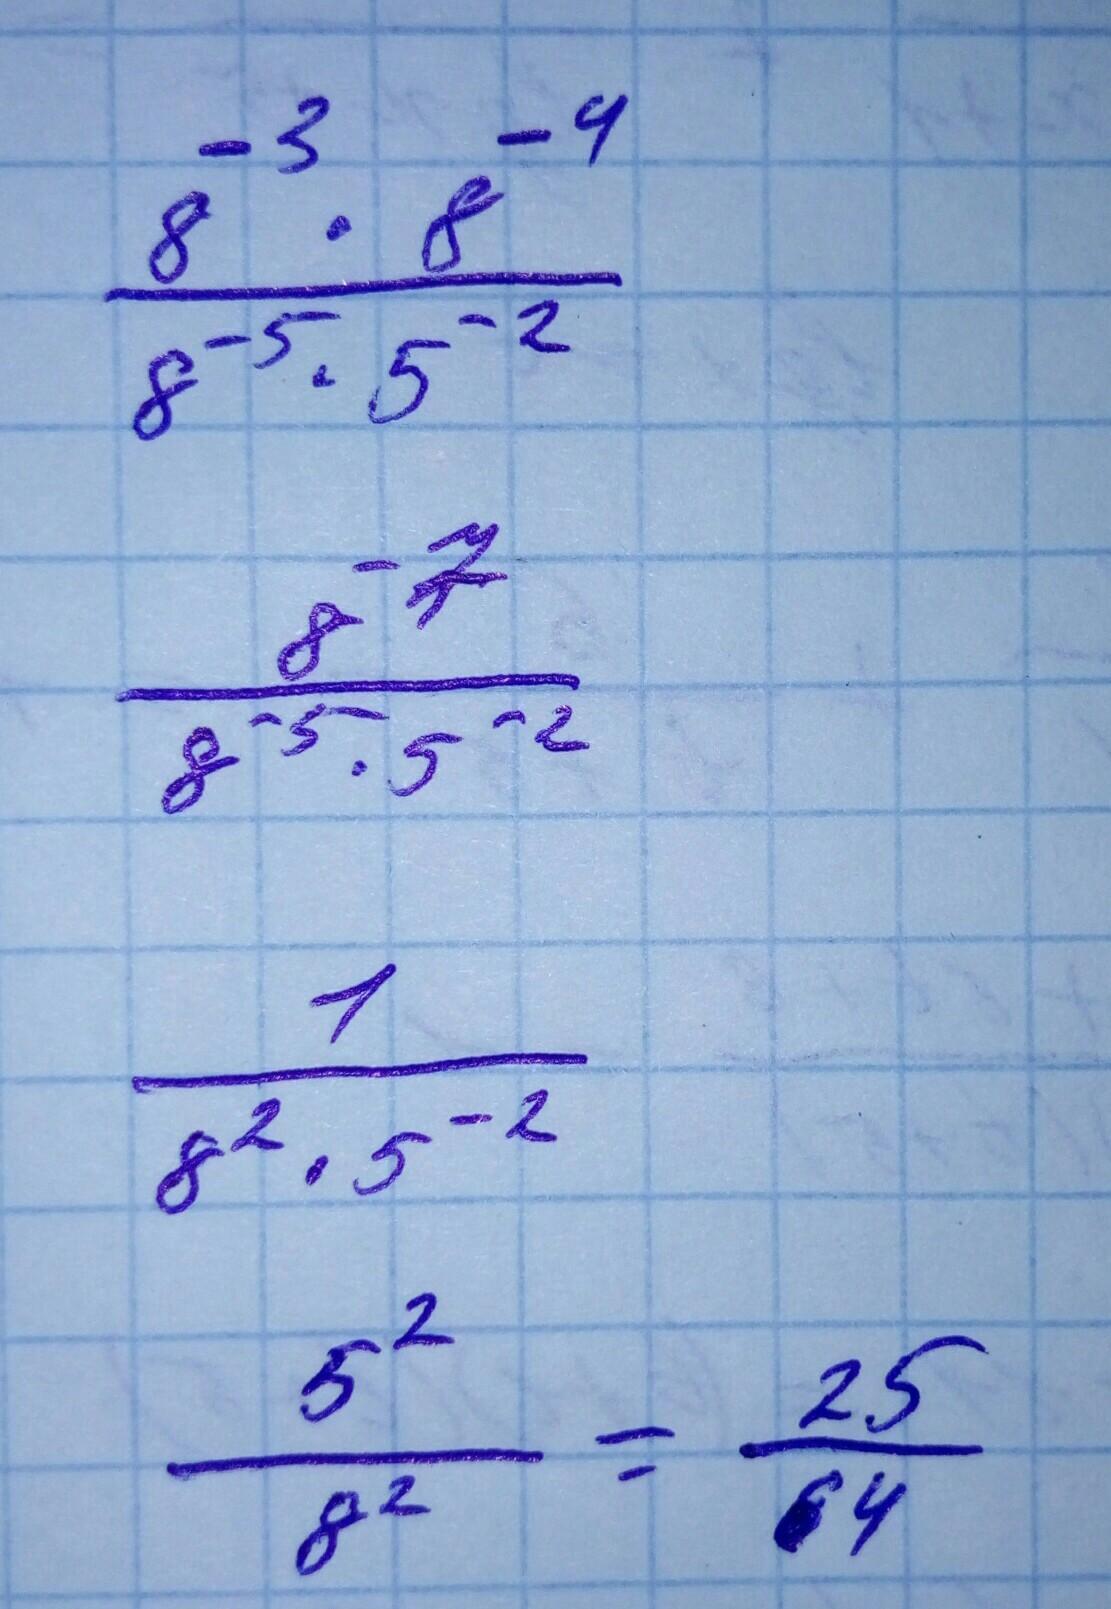 8⁻³ · 8⁻⁴
8⁻⁵ · 5⁻²
8⁻⁷
8⁻⁵ · 5⁻²
1
8² · 5⁻²
5² / 8² = 25 / 64